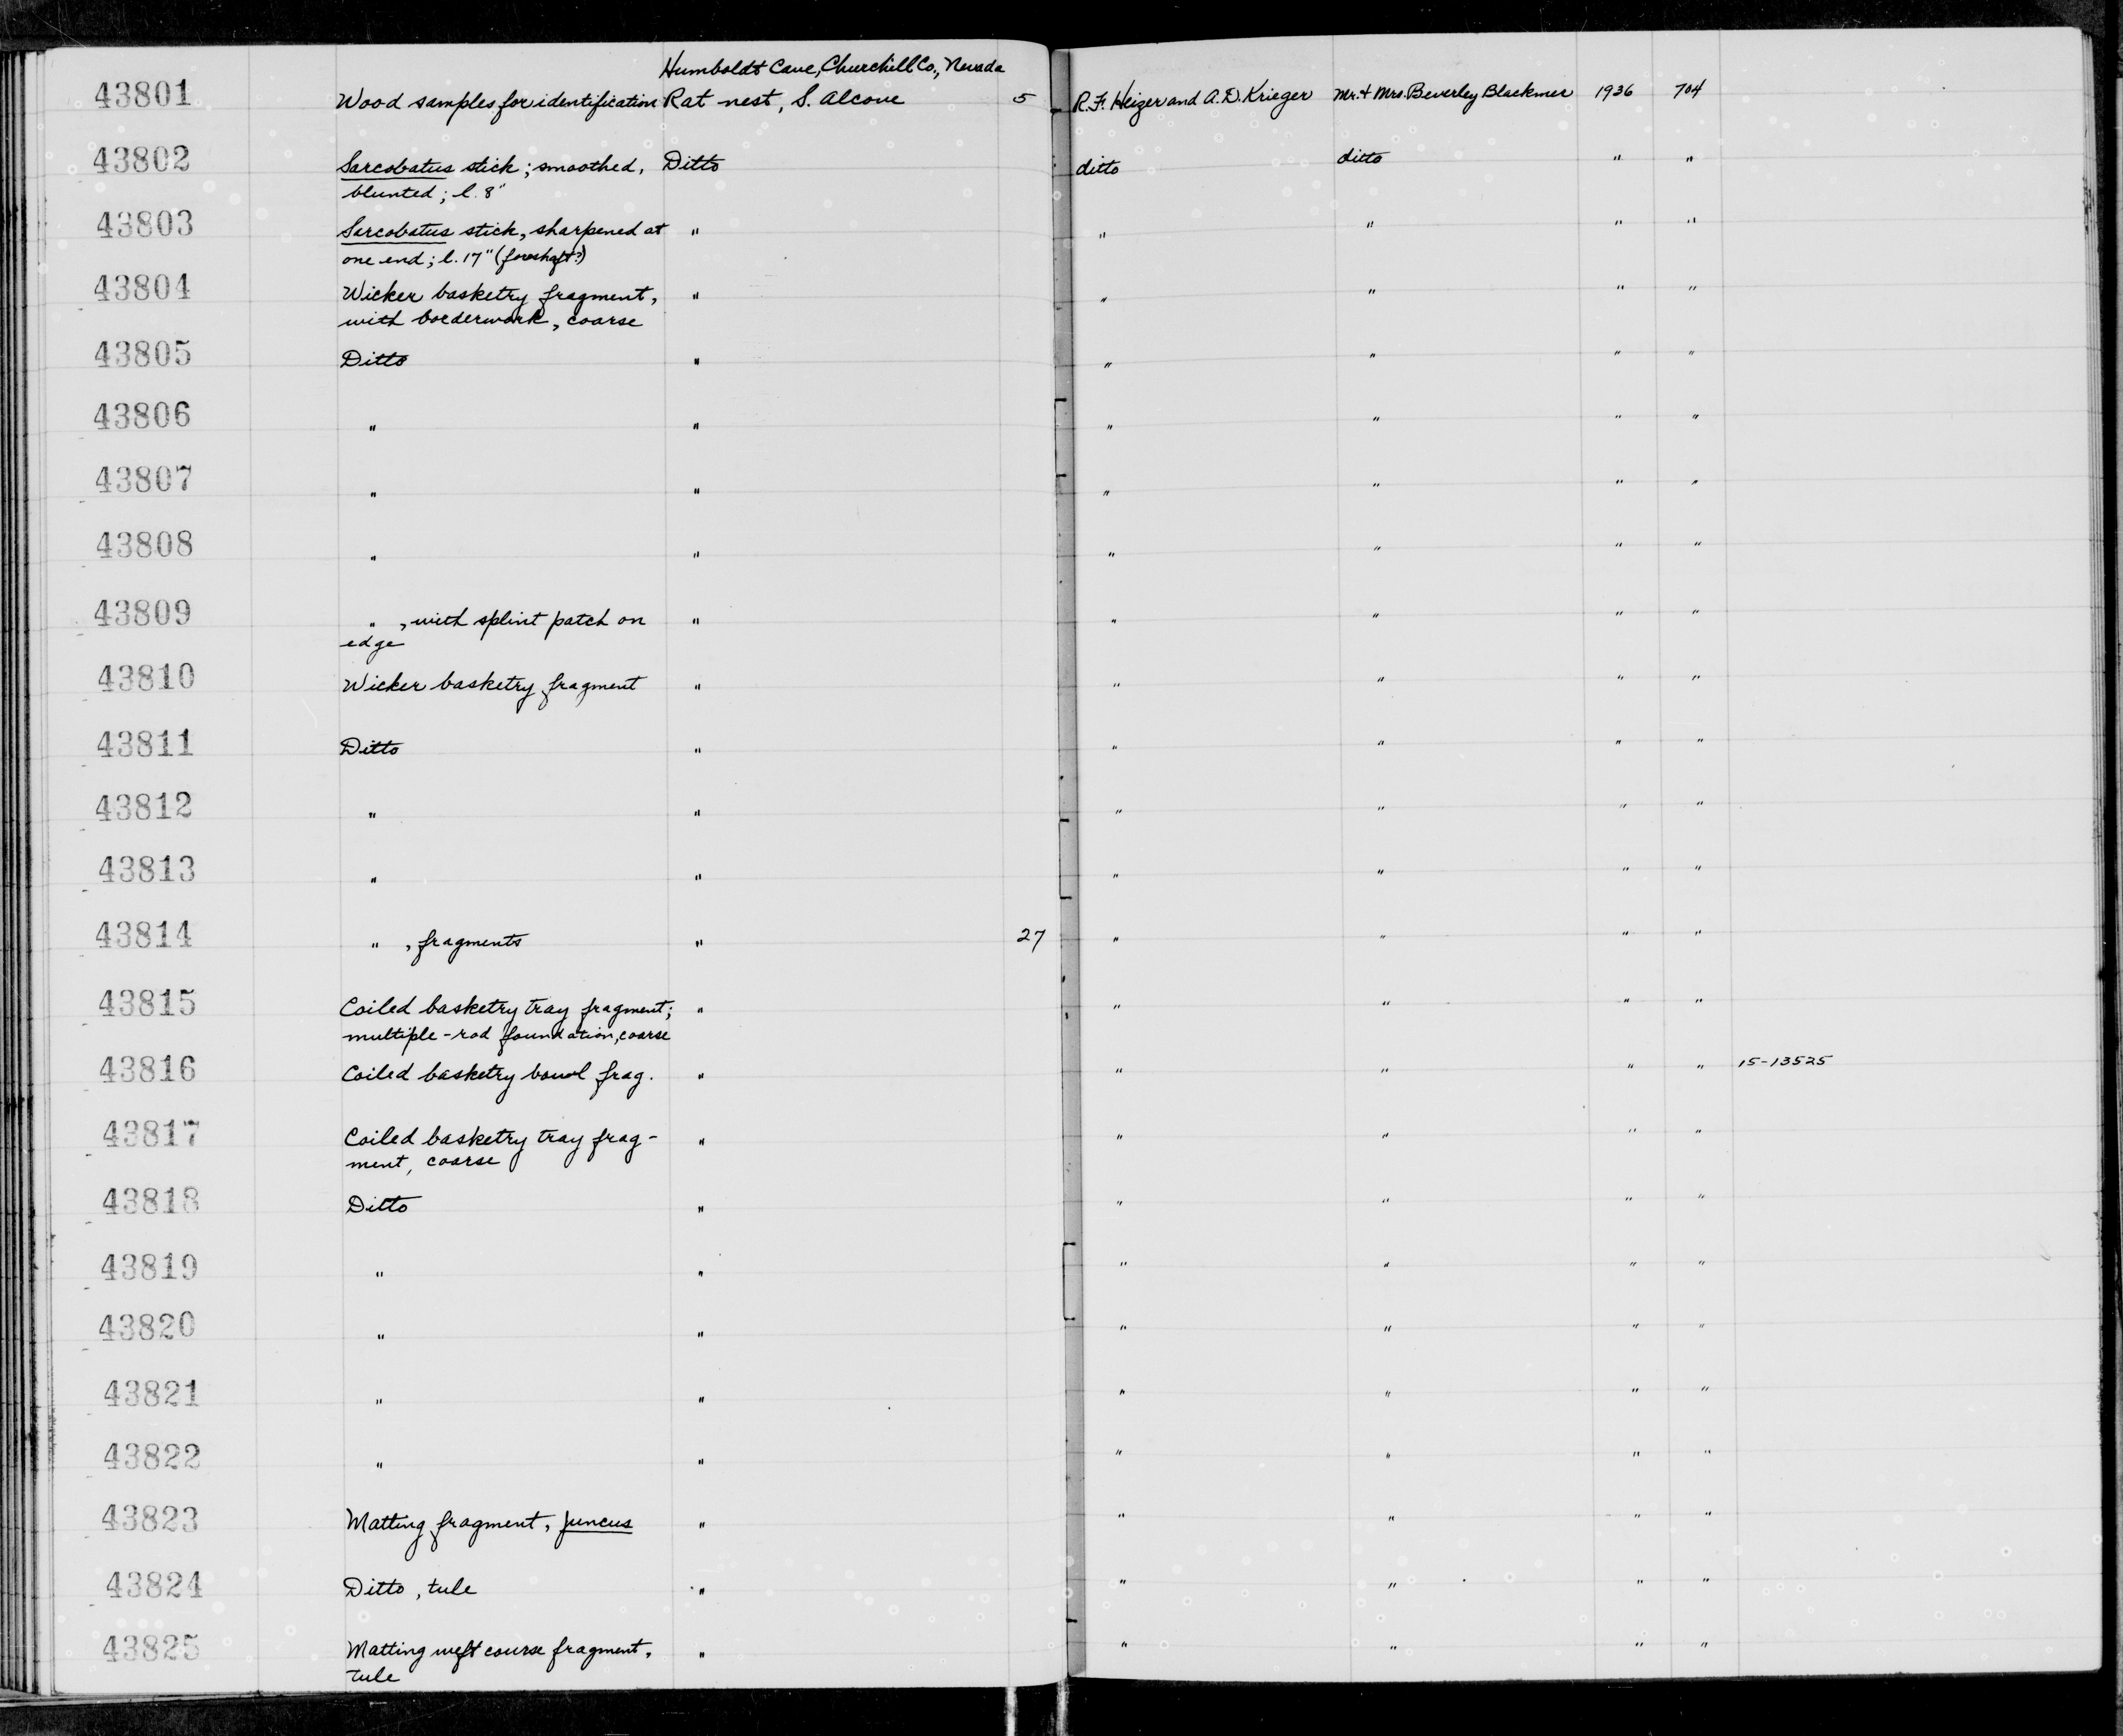 Humboldt Cave, Churchill Co., Nevada
43801 Wood samples for identification Rat nest, S. Alcove 5 R.F. Heizer and A.D. Krieger Mr. + Mrs. Beverley Blackmer 1936 704
43802 Sarcobatus stick; smoothed, Ditto ditto ditto " "
blunted; l. 8"
43803 Sarcobatus stick, sharpened at " " " " "
one end; l. 17" (foreshaft?)
43804 Wicker basketry fragment, " " " " "
with borderwork, coarse
43805 Ditto " " " " "
43806 " " " " " "
43807 " " " " " "
43808 " " " " " "
43809 " , with splint patch on " " " " "
edge
43810 Wicker basketry fragment " " " " "
43811 Ditto " " " " "
43812 " " " " " "
43813 " " " " " "
43814 " , fragments " 27 " " " "
43815 Coiled basketry tray fragment; " " " " "
multiple-rod foundation, coarse
43816 Coiled basketry bowl frag. " " " " " 15-13525
43817 Coiled basketry tray frag- " " " " "
ment, coarse
43818 Ditto " " " " "
43819 " " " " " "
43820 " " " " " "
43821 " " " " " "
43822 " " " " " "
43823 Matting fragment, juncus " " " " "
43824 Ditto, tule " " " " "
43825 Matting weft course fragment, " " " " "
tule